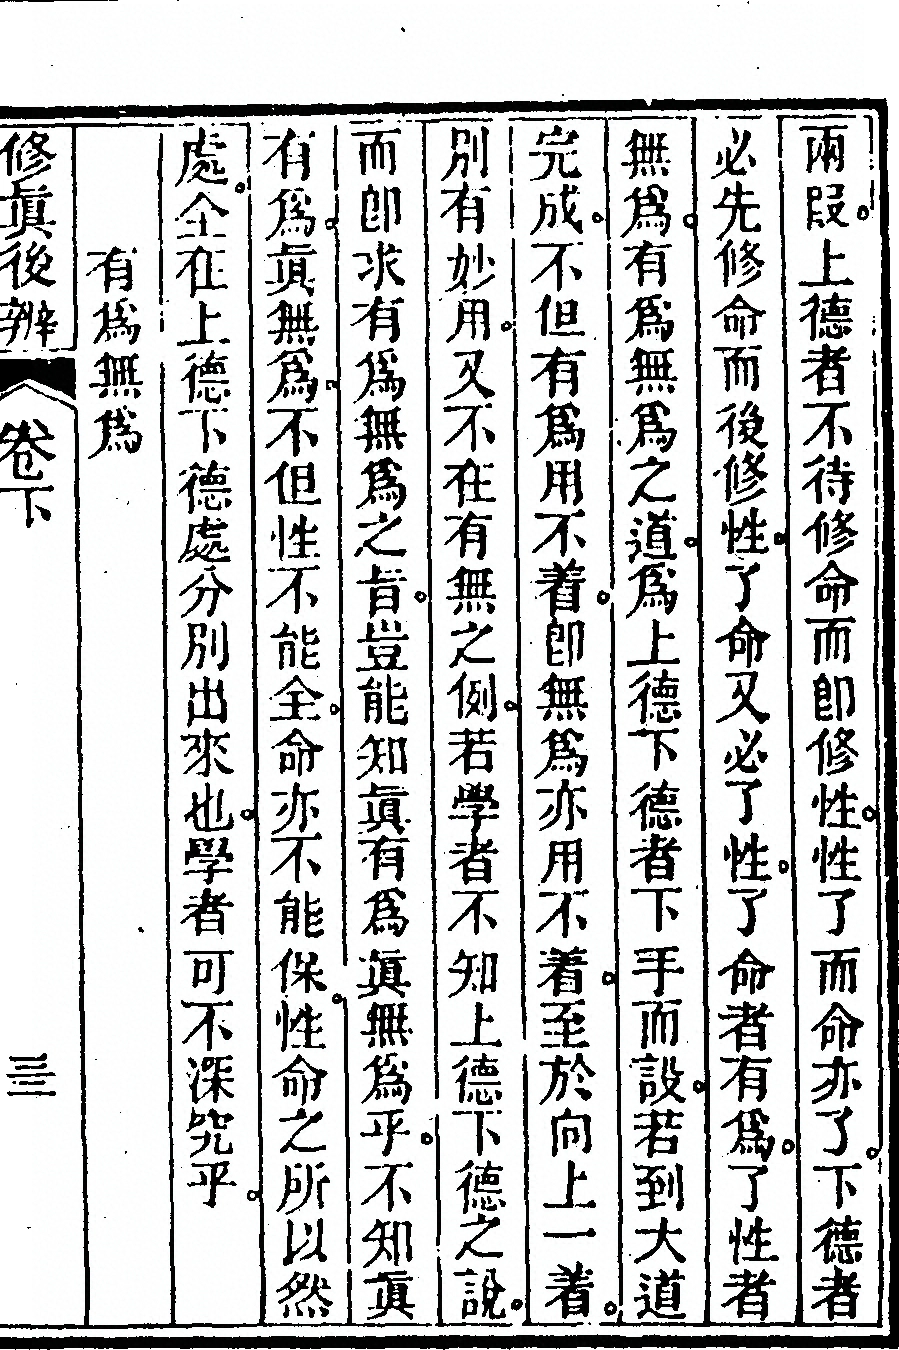 兩叚。上德者不待修命而卽修性。性了而命亦了。下德者
必先修命而後修性。了命又必了性。了命者有爲。了性者
無爲。有爲無爲之道。爲上德下德者下手而設。若到大道
完成。不但有爲用不着。卽無爲亦用不着。至於向上一着。
別有妙用。又不在有無之例。若學者不知上德下德之說。
而卽求有爲無爲之旨。豈能知眞有爲眞無爲乎。不知眞
有爲。眞無爲。不但性不能全。命亦不能保。性命之所以然
處。全在上德下德處分別出來也。學者可不深究乎。
有爲無爲
修眞後辨
卷下
三